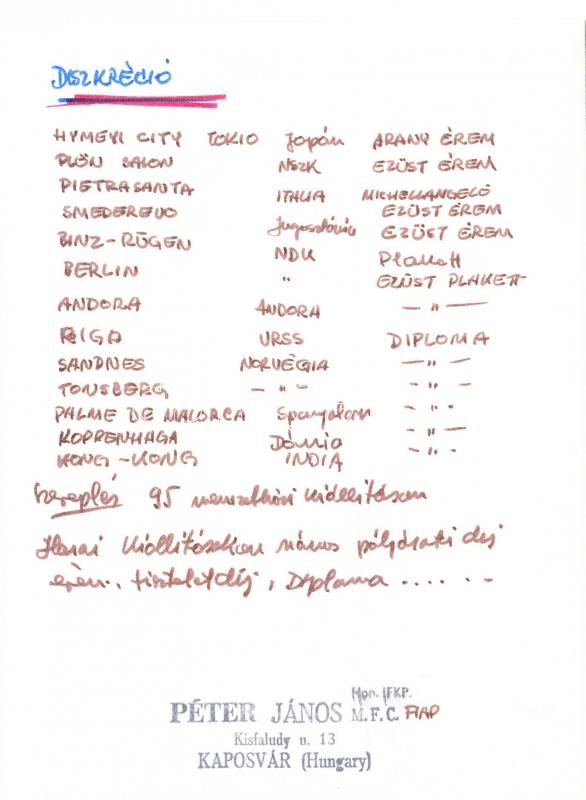 DISZKRÉCIÓ
HYMEYI CITY TOKIO Japán ARANY ÉREM
PLÖN SALON NSZK EZÜST ÉREM
PIETRASANTA ITALIA MICHELLANGELÓ
SMEDEREVO Jugoszlávia EZÜST ÉREM
BINZ-RÜGEN NDK EZÜST ÉREM
BERLIN " Plakett
EZÜST PLAKETT
ANDORA ANDORA — " —
RIGA URSS DIPLOMA
SANDNES NORVÉGIA — " —
TONSBERG — " — - " -
PALME DE MALORCA Spanyolom - " -
KOPPENHAGA Dánia - " —
HONG-KONG INDIA - " -
Szereplés 95 nemzetközi kiállításon
Hazai kiállításokon számos pályázati díj
érem., tiszteletdíj, Diploma ......
Hon. IFKP.
PÉTER JÁNOS M.F.C. FIAP
Kisfaludy u. 13
KAPOSVÁR (Hungary)